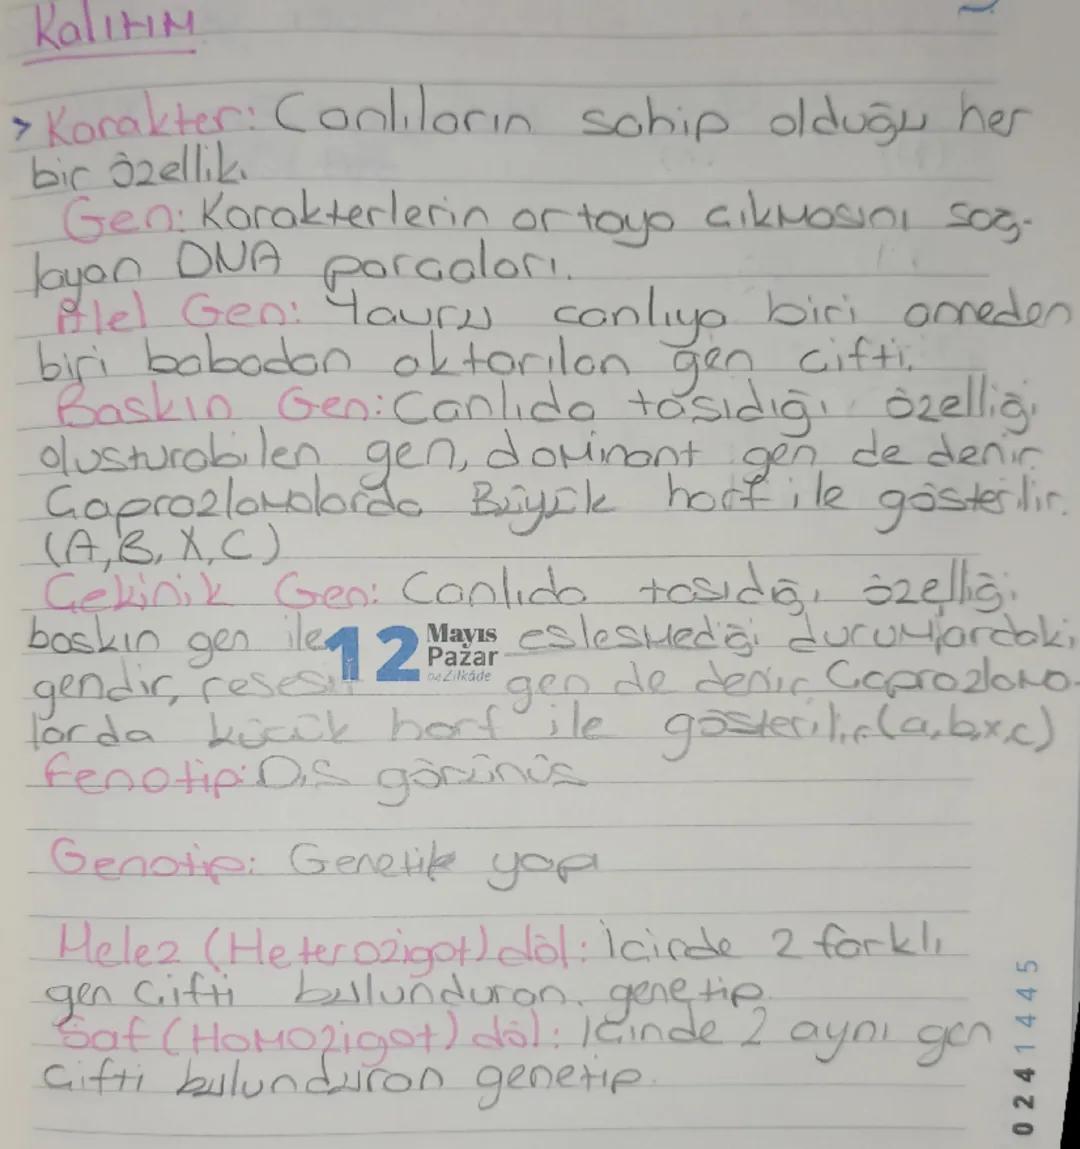 Kalıtım
> Karakter: Canlıların sahip olduğu her
bir özellik.
Gen: Karakterlerin ortaya cıkmasını sağ-
layan DNA parcaları.
Alel Gen: Yavru canlıya biri anneden
biri babadan aktarılan gen cifti.
Baskın Gen: Canlıda tasıdığı özelliği
olusturabilen gen, dominant gen de denir
Caprazlamalarda Büyük harf ile gösterilir.
(A, B, X, C)
Cekinik Gen: Canlıda tasıdığı özelliği
baskın gen ile eslesmediği durumlardaki
12 Mayıs
Pazar
Zilkâde
gendir, reses gen de denir Caprazlama-
larda kücük harf ile gösterilir (a,b,x,c)
Fenotip: Dıs görünüs
Genotip: Genetik yapı
Melez (Heterozigot) döl: İcirde 2 farklı
gen cifti bulunduran genetip.
Saf (Homozigot) döl: İcinde 2 aynı gen
cifti bulunduran genetip.
0241445